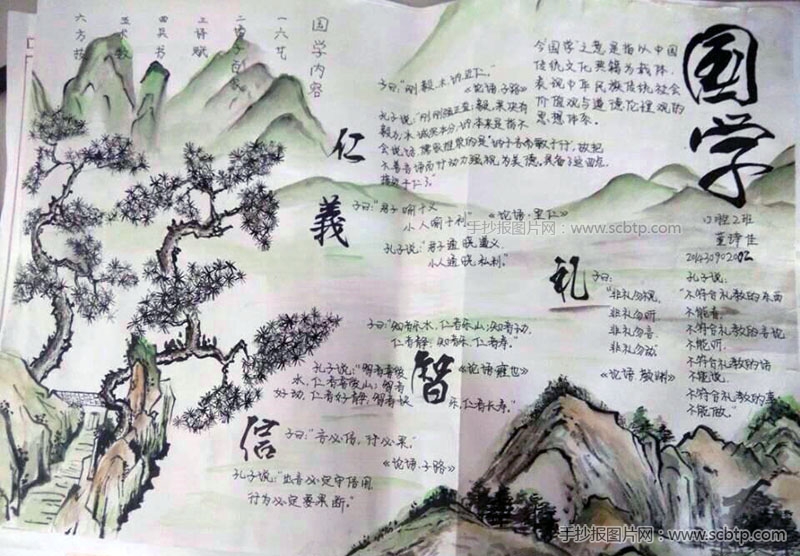 国学
今"国学"之意是指以中国
传统文化典籍为载体,
表现中华民族传统社会
价值观与道德伦理观的
思想体系。
口班2班
201430902002
国学内容
一六艺
二诸子百家
三诗赋
四兵书
五术数
六方技
仁
子曰:"刚、毅、木、讷近仁。"
《论语·子路》
不善言语而行动力强视为美德。具备了这四点,
接近于仁了。
義
子曰:"君子喻于义
小人喻于利"
《论语·里仁》
孔子说:"君子通晓道义
小人通晓私利。"
礼
子曰:
"非礼勿视,
非礼勿听
非礼勿言
非礼勿动
《论语·颜渊》
孔子说:
"不符合礼教的东西
不能看,
不符合礼教的言论
不能听,
不符合礼教的话
不能说,
不符合礼教的事
不能做。"
智
子曰:"知者乐水,仁者乐山;知者动,
仁者静;知者乐,仁者寿。"
《论语·雍也》
孔子说:"智者喜爱
水,仁者喜爱山;智者
好动,仁者好静;智者快
乐,仁者长寿。"
信
子曰:"言必信,行必果。"
《论语·子路》
孔子说:"出言必定守信用
行为必定要果断。"
手抄报图片网:www.scbtp.com
手抄报图片网:www.scbtp.com